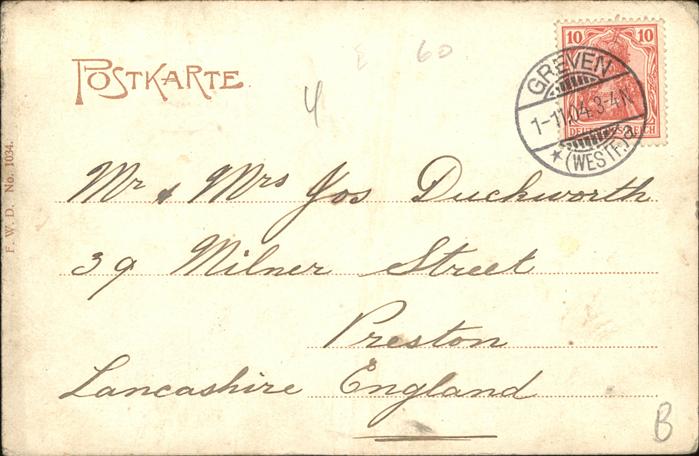 POSTKARTE.
E 60
4
10 10
DEUTSCHES REICH
GREVEN
1-11.04.3-4N.
★ (WESTF.) a
Mr & Mrs Jos Duckworth
39 Milner Street
Preston
Lancashire England
F. W. D. No. 1034.
B